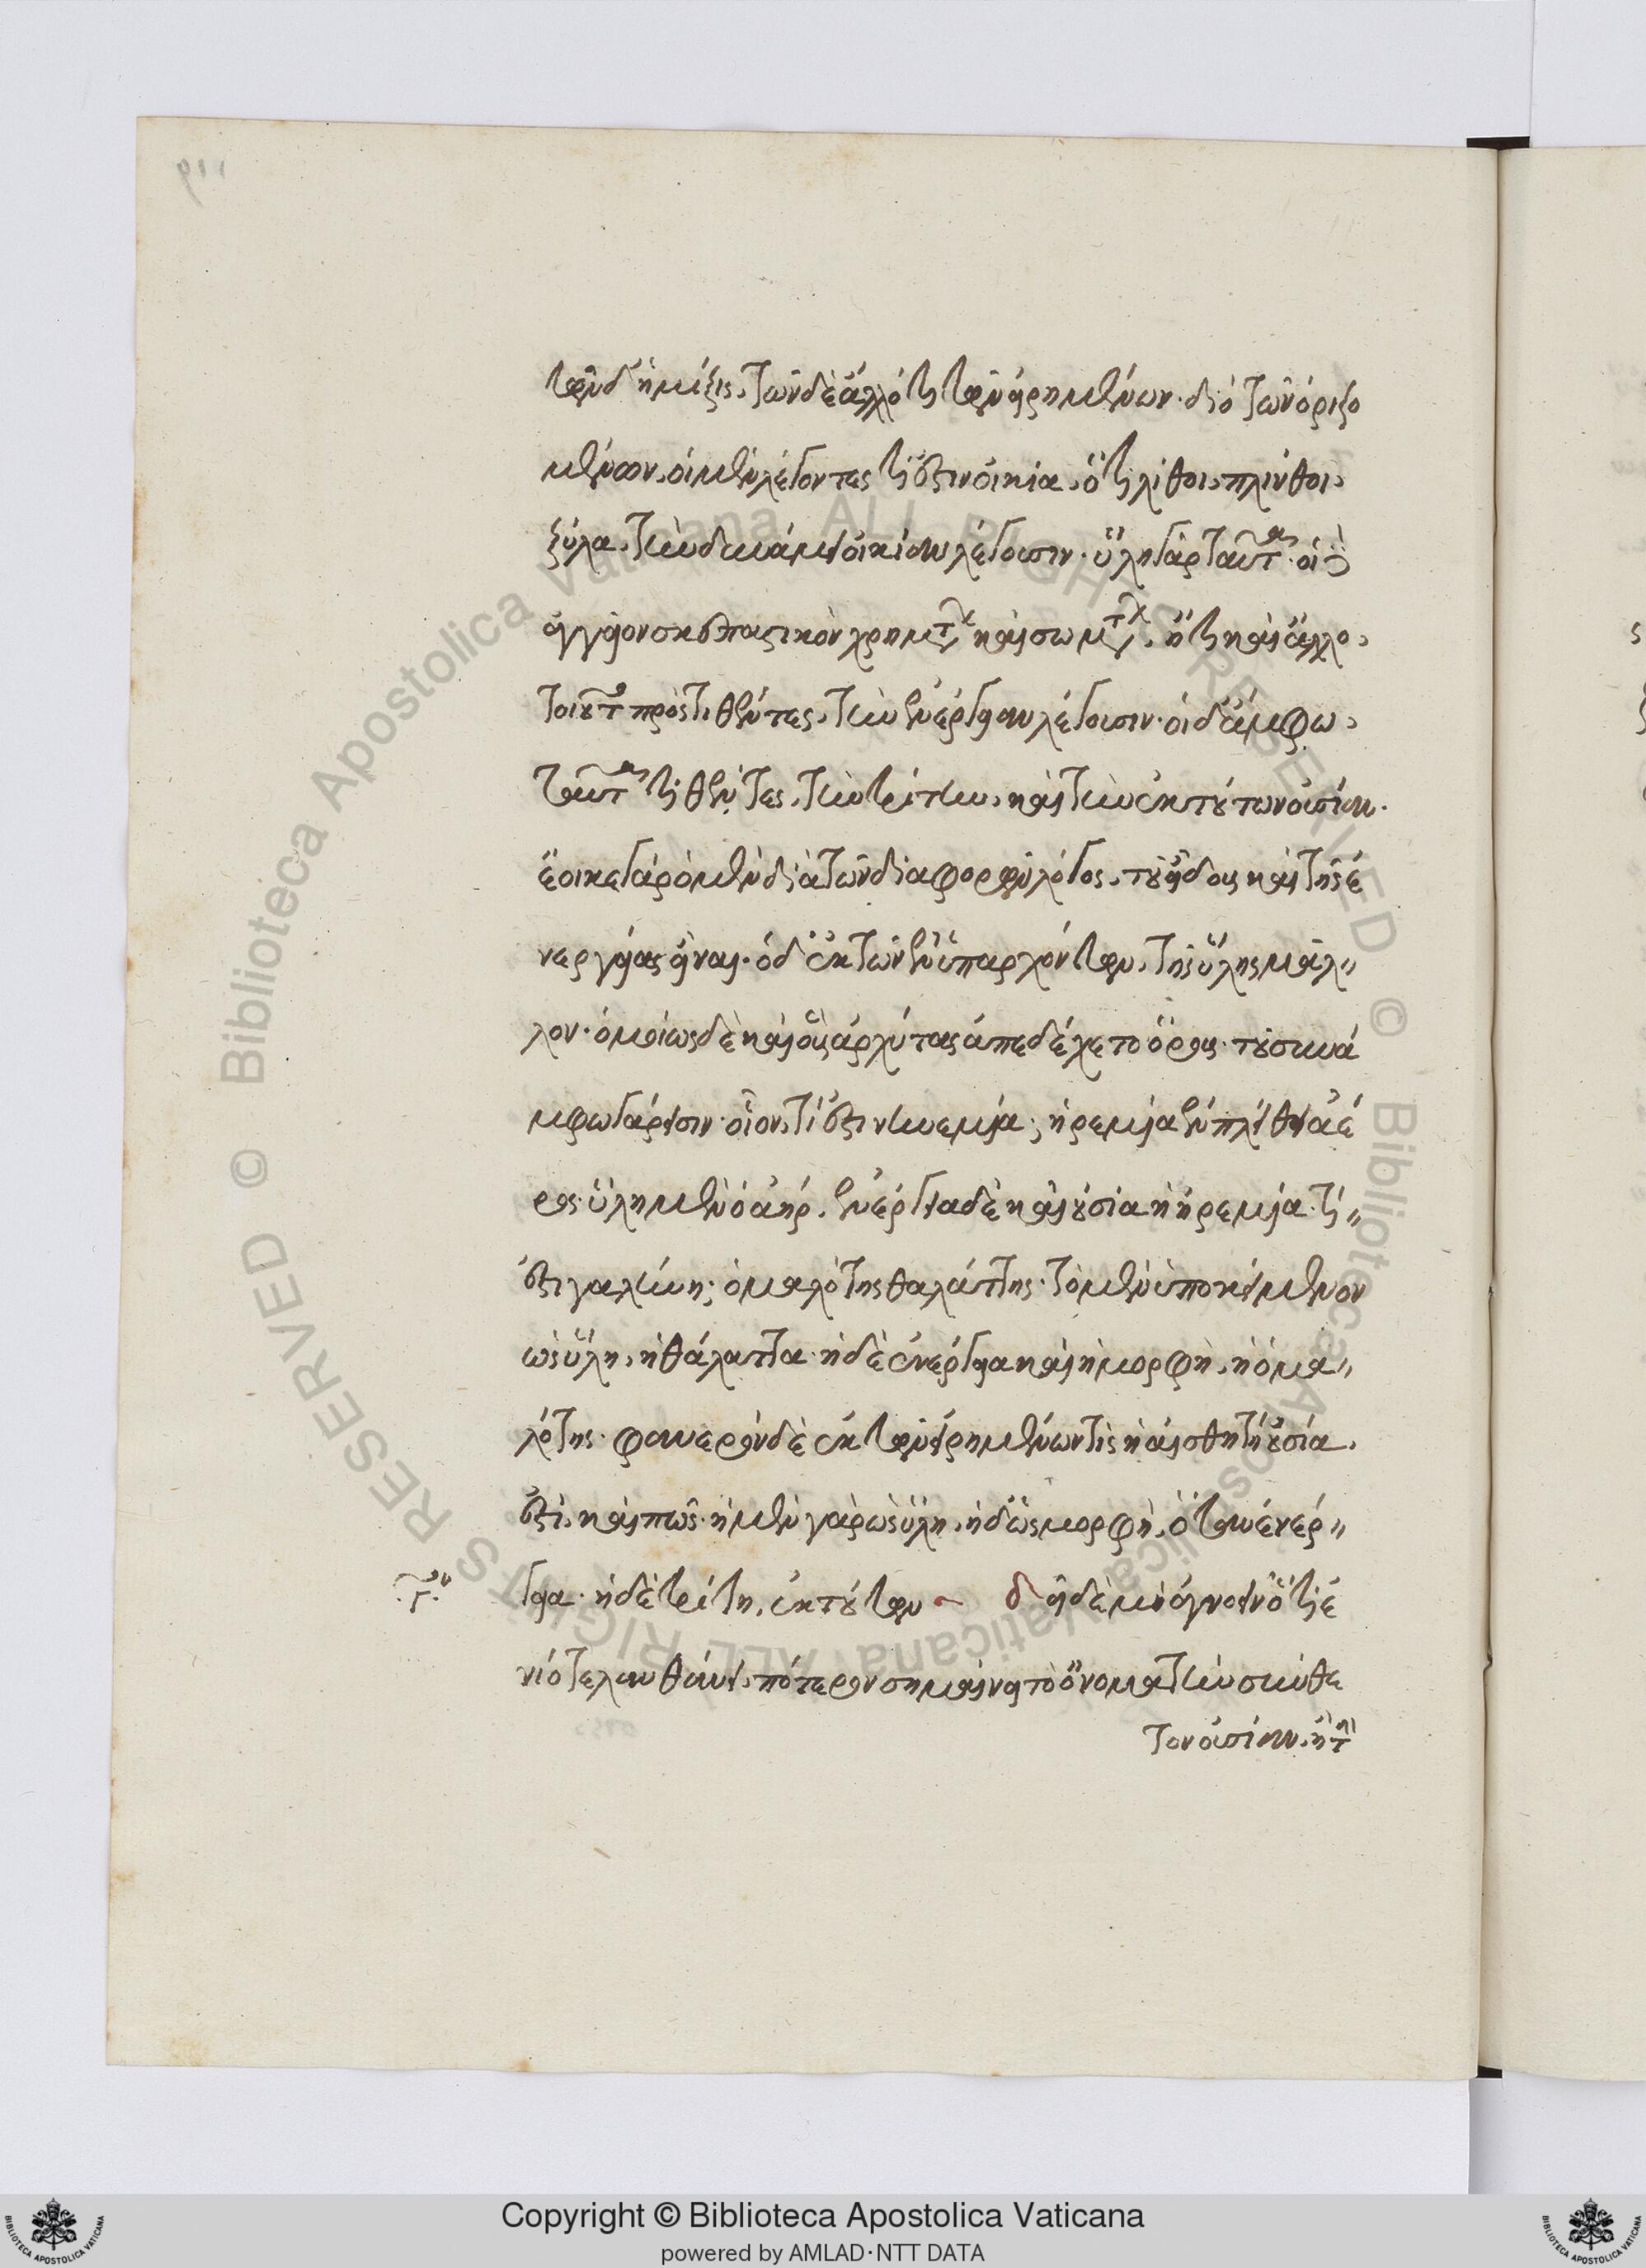 των δ' ἡ μίξις. τῶν δὲ ἄλλό τι τῶν εἰρημένων. διὸ τῶν ὁριζο
μένων. οἱ μὲν λέγοντες τί ἐστιν οἰκία. ὅτι λίθοι. πλίνθοι.
ξύλα. τὴν δυνάμει οἰκίαν λέγουσιν. ὕλη γὰρ ταῦτα. οἱ δὲ
ἀγγεῖον σκεπαστικὸν χρημάτων καὶ σωμάτων. ἤ τι καὶ ἄλλο
τοιοῦτον προστιθέντες. τὴν ἐνέργειαν λέγουσιν. οἱ δ' ἄμφω
ταῦτα τιθέντες. τὴν τρίτην. καὶ τὴν ἐκ τούτων οὐσίαν.
ἔοικε γὰρ ὁ μὲν διὰ τῶν διαφορῶν λόγος. τοῦ εἴδους καὶ τῆς ἐ
νεργείας εἶναι. ὁ δ' ἐκ τῶν ἐνυπαρχόντων. τῆς ὕλης μᾶλ
λον. ὁμοίως δὲ καὶ οὓς ἀρχύτας ἀπεδέχετο ὅρους. τοῦ συνά
μφω γάρ εἰσιν. οἷον τί ἐστι νηνεμία; ἠρεμία ἐν πλήθει ἀέ
ρος. ὕλη μὲν ὁ ἀήρ. ἐνέργεια δὲ καὶ οὐσία ἡ ἠρεμία. τί
ἐστι γαλήνη; ὁμαλότης θαλάττης. τὸ μὲν ὑποκείμενον
ὡς ὕλη. ἡ θάλαττα. ἡ δὲ ἐνέργεια καὶ ἡ μορφὴ. ἡ ὁμα
λότης. φανερὸν δὲ ἐκ τῶν εἰρημένων τίς ἡ αἰσθητὴ οὐσία.
ἐστὶ. καὶ πῶς. ἡ μὲν γὰρ ὡς ὕλη. ἡ δ' ὡς μορφὴ. ὅταν ἐνέρ
γεια. ἡ δὲ τρίτη. ἐκ τούτων δεῖ δὲ μὴ ἀγνοεῖν ὅτι ἐ
νίοτε λανθάνει. πότερον σημαίνει τὸ ὄνομα τὴν σύνθε
τον οὐσίαν. ἢ τὴν